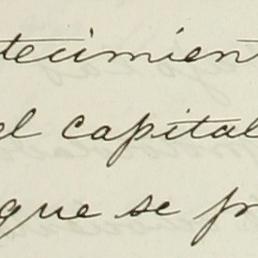 tecimient
el capital
que se pr